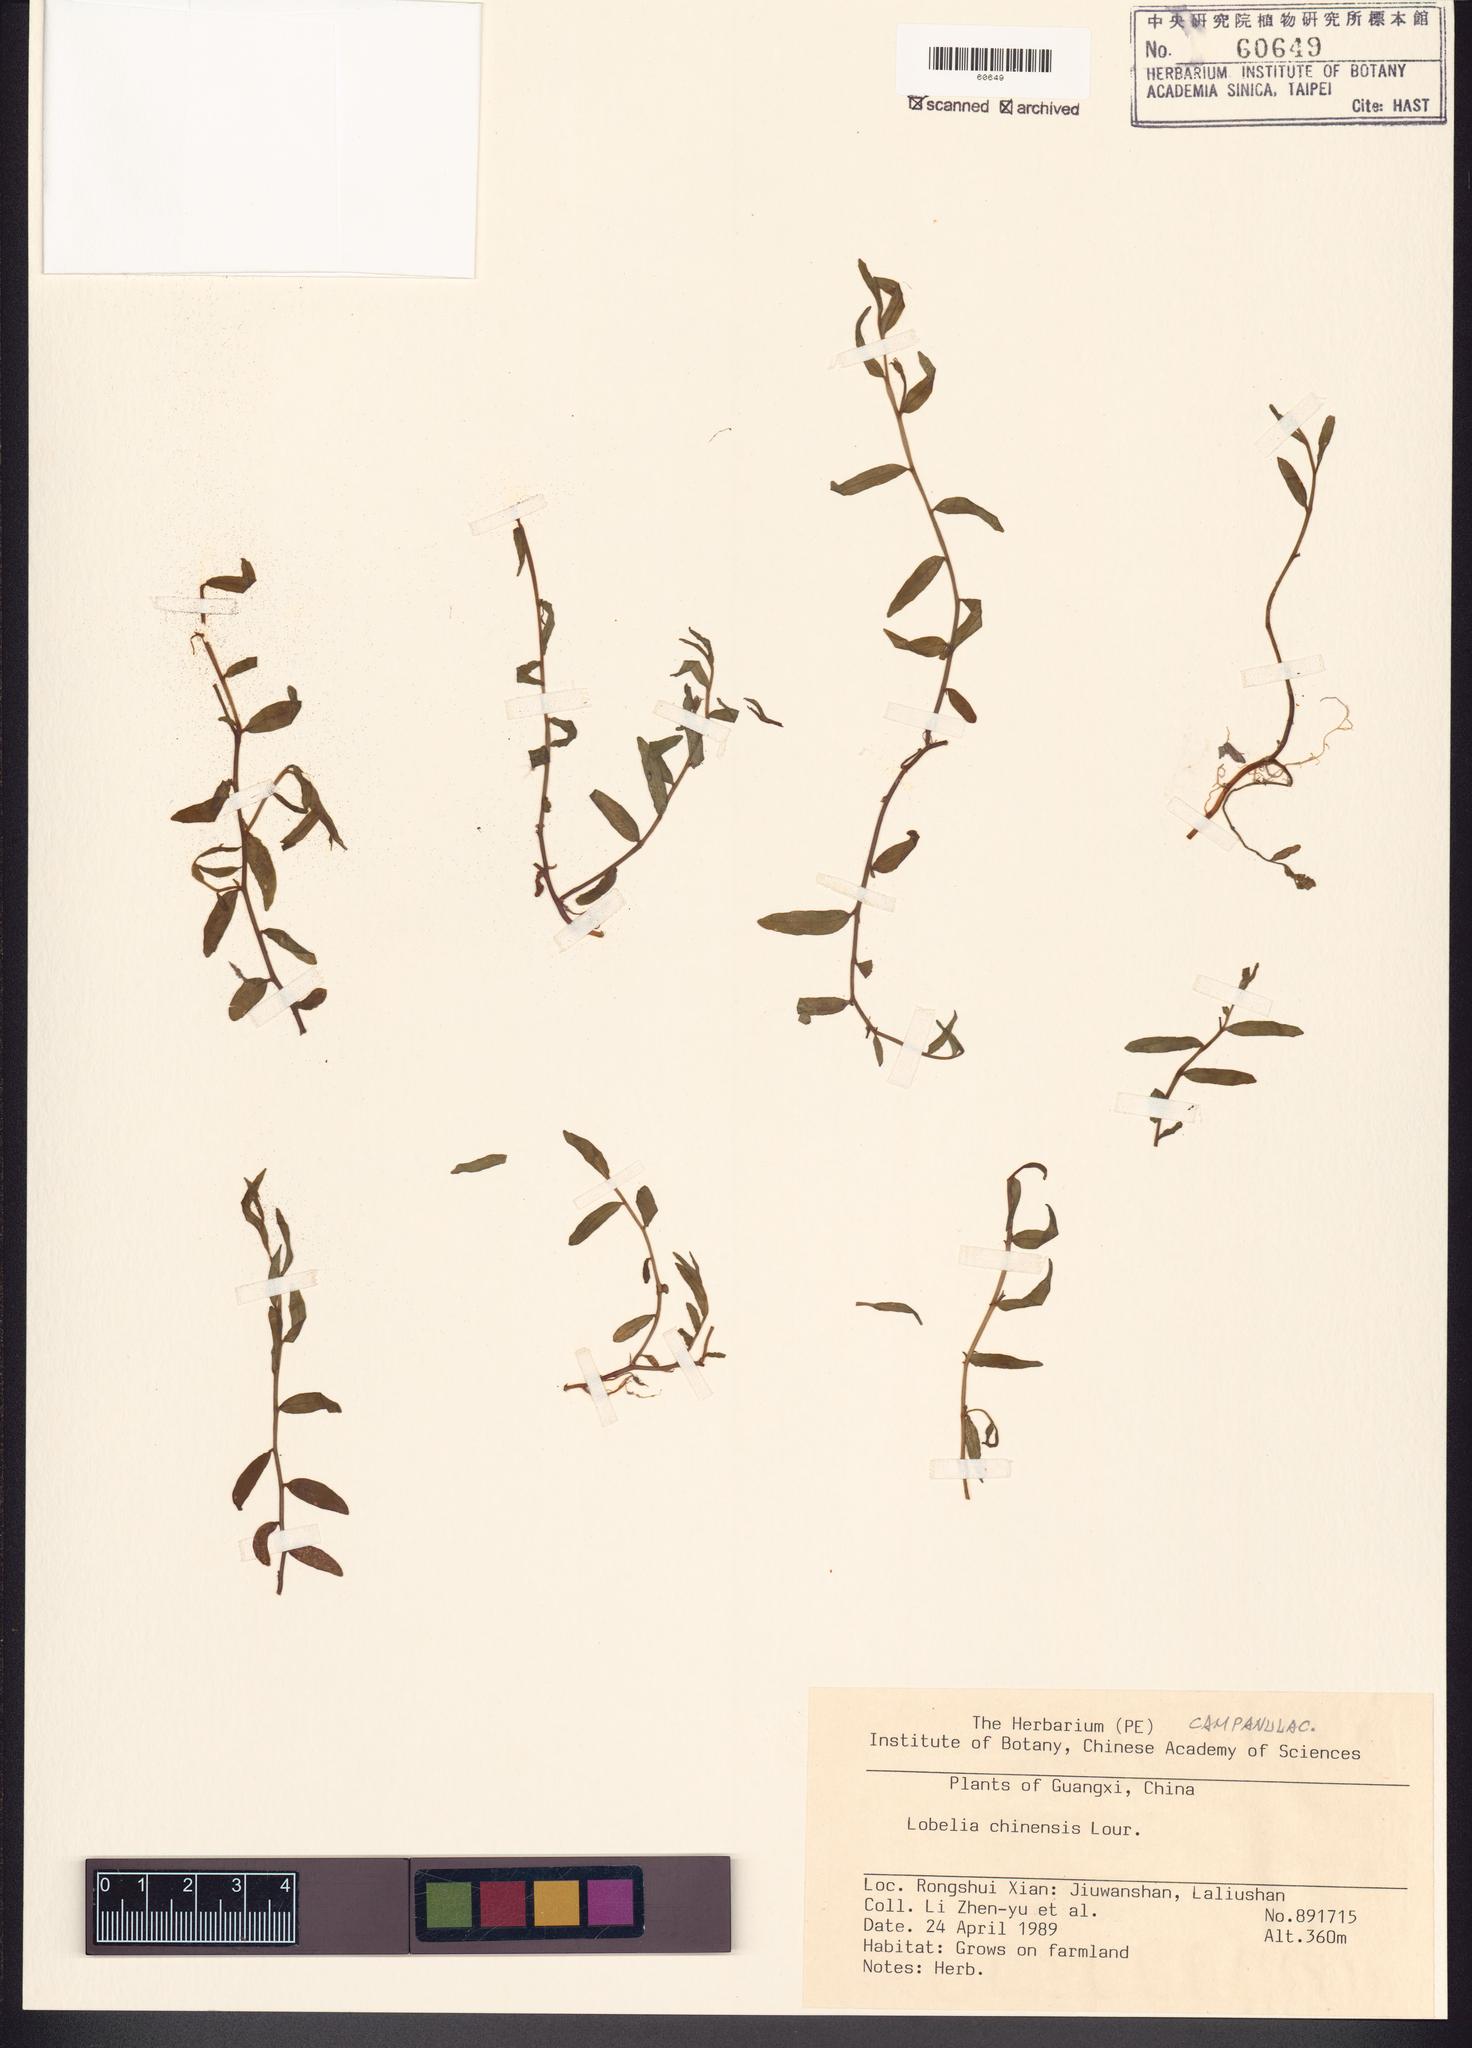 中央研究院植物研究所標本館
No. 60649
HERBARIUM INSTITUTE OF BOTANY
ACADEMIA SINICA, TAIPEI
Cite: HAST
60649
scanned archived
The Herbarium (PE) CAMPANULAC.
Institute of Botany, Chinese Academy of Sciences
Plants of Guangxi, China
Lobelia chinensis Lour.
Loc. Rongshui Xian: Jiuwanshan, Laliushan
Coll. Li Zhen-yu et al. No.891715
Date. 24 April 1989 Alt.360m
Habitat: Grows on farmland
Notes: Herb.
0 1 2 3 4